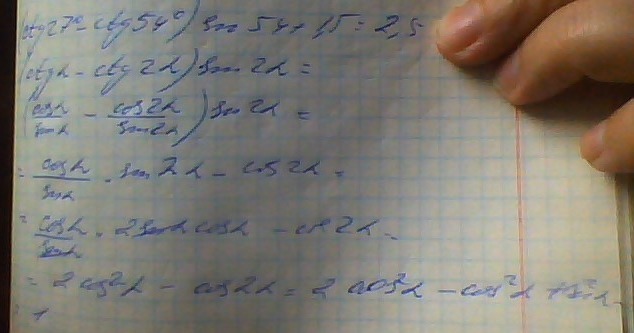 (ctg 27° - ctg 54°) sin 54 + 1,5 = 2,5
(ctg α - ctg 2α) sin 2α =
(cos α / sin α - cos 2α / sin 2α) sin 2α =
= cos α / sin α · sin 2α - cos 2α =
= cos α / sin α · 2 sin α cos α - cos 2α =
= 2 cos² α - cos 2α = 2 cos² α - cos² α + sin² α =
= 1